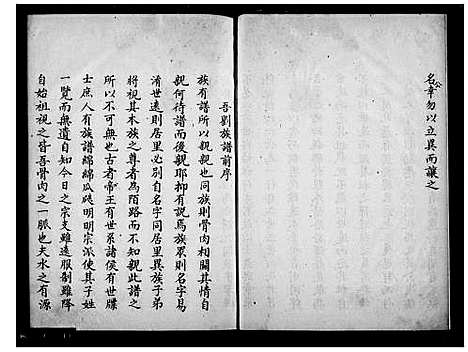 名公幸勿以立異而讓之
吾劉族譜前序
族有譜所以親親也同族則骨肉相關其情自
親何待譜而後親耶抑有說焉族衆則名字易
淆世遠則居里必別自名字同居里異族子弟
將視其本族之尊者為陌路而不知尊此譜之
所以不可無也古者帝王有世系諸侯有世牒
士庶人有族譜綿綿瓜瓞明明宗派使其子姓
一覽而無遺自知今日之宗支雖遠服制雖降
自始祖視之皆吾骨肉之一脈也夫水之有源